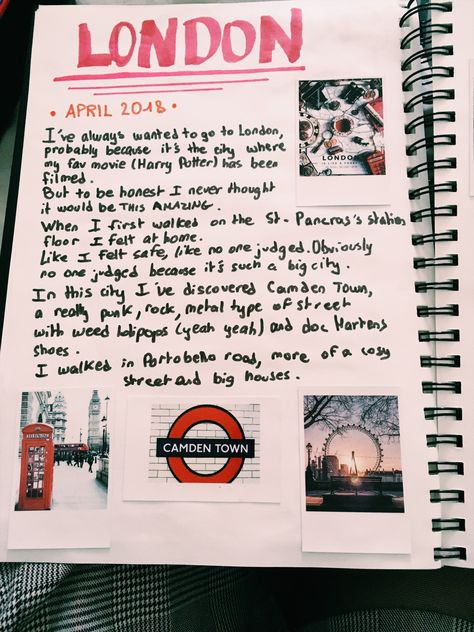 LONDON
• APRIL 2018 •
I've always wanted to go to London,
probably because it's the city where
my fav movie (Harry Potter) has been
filmed.
But to be honest I never thought
it would be THIS AMAZING.
When I first walked on the St-Pancras's station
floor I felt at home.
Like I felt safe, like no one judged. Obviously
no one judged because it's such a big city.
In this city I've discovered Camden Town,
a really punk, rock, metal type of street
with weed lolipops (yeah yeah) and doc Martens
shoes.
I walked in Portobello road, more of a cosy
street and big houses.
LONDON
TELEPHONE
CAMDEN TOWN